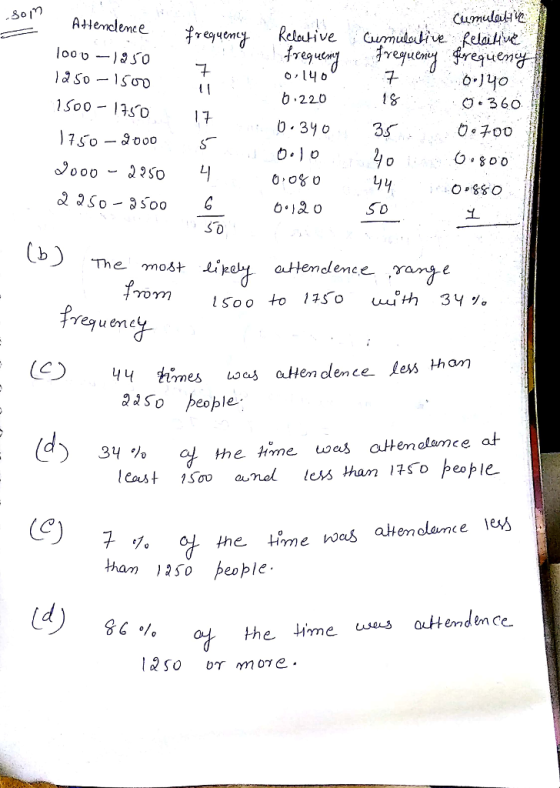 soln
Attendence frequency Relative frequency Cumulative frequency Cumulative Relative frequency
1000 – 1250 7 0.140 7 0.140
1250 – 1500 11 0.220 18 0.360
1500 – 1750 17 0.340 35 0.700
1750 – 2000 5 0.10 40 0.800
2000 – 2250 4 0.080 44 0.880
2250 – 2500 6 0.120 50 1
50
(b) The most likely attendence range
from 1500 to 1750 with 34 %
frequency
(c) 44 times was attendence less than
2250 people.
(d) 34 % of the time was attendance at
least 1500 and less than 1750 people
(e) 7 % of the time was attendance less
than 1250 people.
(d) 86 % of the time was attendence
1250 or more.